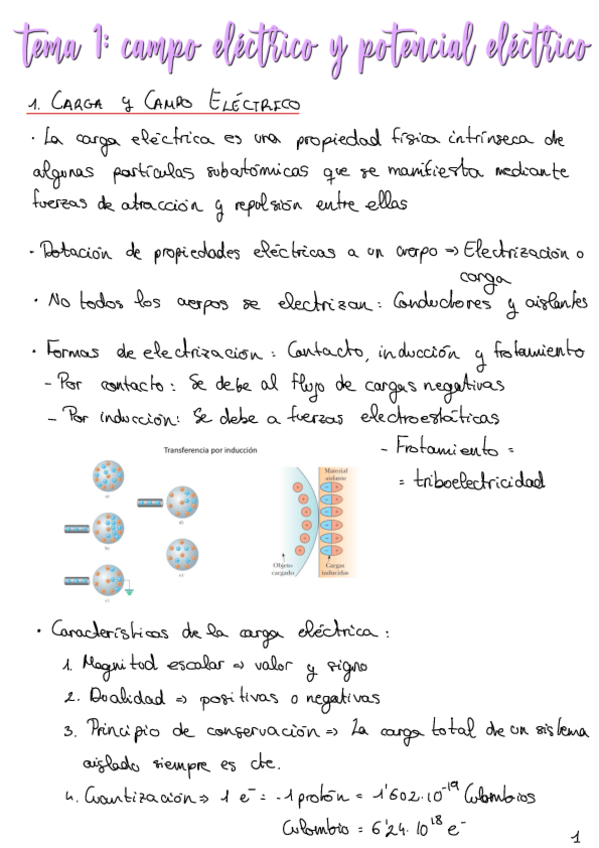 tema 1: campo eléctrico y potencial eléctrico
1. CARGA y CAMPO ELÉCTRICO
· La carga eléctrica es una propiedad física intrínseca de
algunas partículas subatómicas que se manifiesta mediante
fuerzas de atracción y repulsión entre ellas
· Dotación de propiedades eléctricas a un cuerpo => Electrización o
carga
· No todos los cuerpos se electrizan: Conductores y aislantes
· Formas de electrización: Contacto, inducción y frotamiento
- Por contacto: Se debe al flujo de cargas negativas
- Por inducción: Se debe a fuerzas electroestáticas
- Frotamiento =
= triboelectricidad
Transferencia por inducción
Material
aislante
Objeto
cargado
Cargas
inducidas
· Características de la carga eléctrica:
1. Magnitud escalar => valor y signo
2. Dualidad => positivas o negativas
3. Principio de conservación => La carga total de un sistema
aislado siempre es cte.
4. Cuantización => 1 e⁻ = -1 protón = 1'602·10⁻¹⁹ Culombios
Culombio = 6'24·10¹⁸ e⁻
1